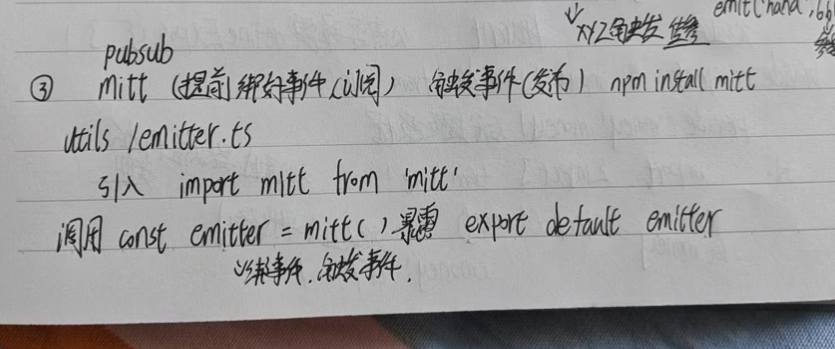 emit('haha',66
↓
XYZ触发 传参
pubsub
③ mitt (提前绑好事件(订阅) 触发事件(发布) npm install mitt
utils /emitter.ts
引入 import mitt from 'mitt'
调用 const emitter = mitt() 暴露 export default emitter
↓绑事件.触发事件.